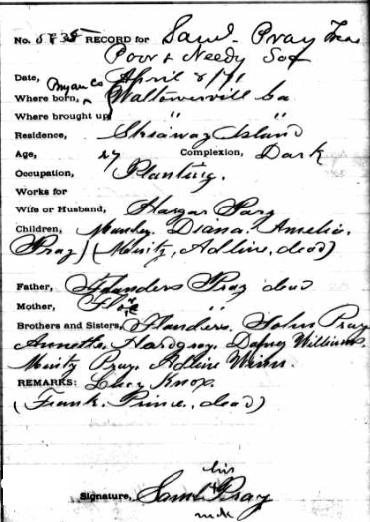 No. 5835 RECORD for Saml. Pray Trea
Poor & Needy Soc
Date, April 8/71
Bryan Co
Where born, Walthowerville Ga
Where brought up, " "
Residence, Skidaway Island
Age, 27 Complexion, Dark
Occupation, Planting.
Works for
Wife or Husband, Hagar Pray
Children, Munday. Diana. Amelia.
Pray) (Minity, Adline, dead)
Father, Flanders Pray dead
Mother, Flora "
Brothers and Sisters, Flanders. John Pray
Annette. Dafney Williams.
Minty Pray. Adline Winn.
REMARKS: Lucy Knox.
(Frank. Prince, dead)
his
Signature, Saml Pray
mrk